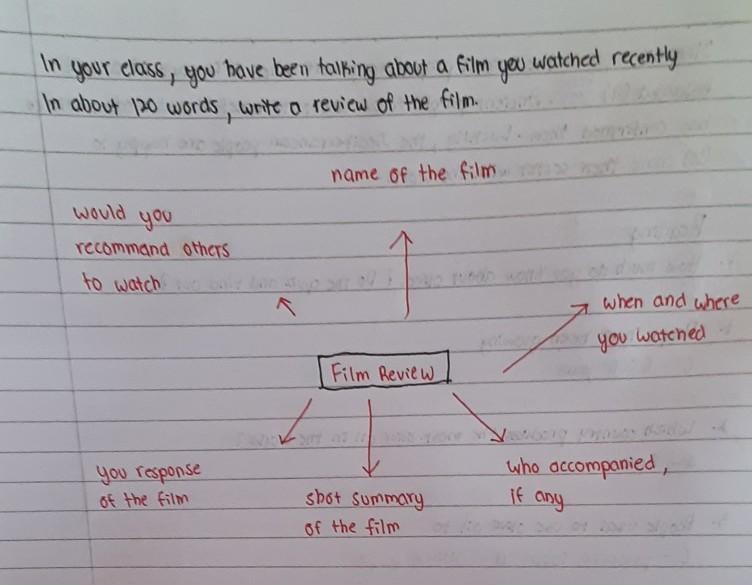 In your class, you have been talking about a film you watched recently
In about 120 words, write a review of the film.
name of the film
would you
recommand others
to watch
when and where
you watched
Film Review
you response
of the film
shot summary
of the film
who accompanied,
if any